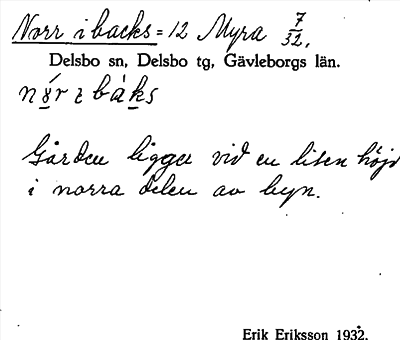 Norr i backs = 12 Myra 7/32.
Delsbo sn, Delsbo tg, Gävleborgs län.
Gården ligger vid en liten höjd
i norra delen av byn.
Erik Eriksson 1932.